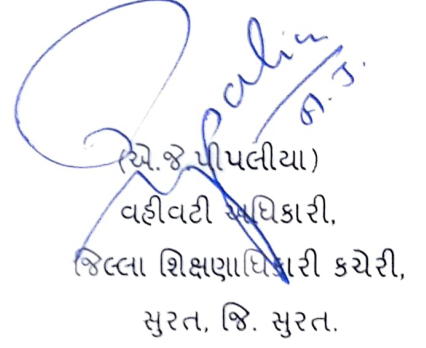 (એ.જે.પીપલીયા)
વહીવટી અધિકારી,
જિલ્લા શિક્ષણાધિકારી કચેરી,
સુરત, જિ. સુરત.